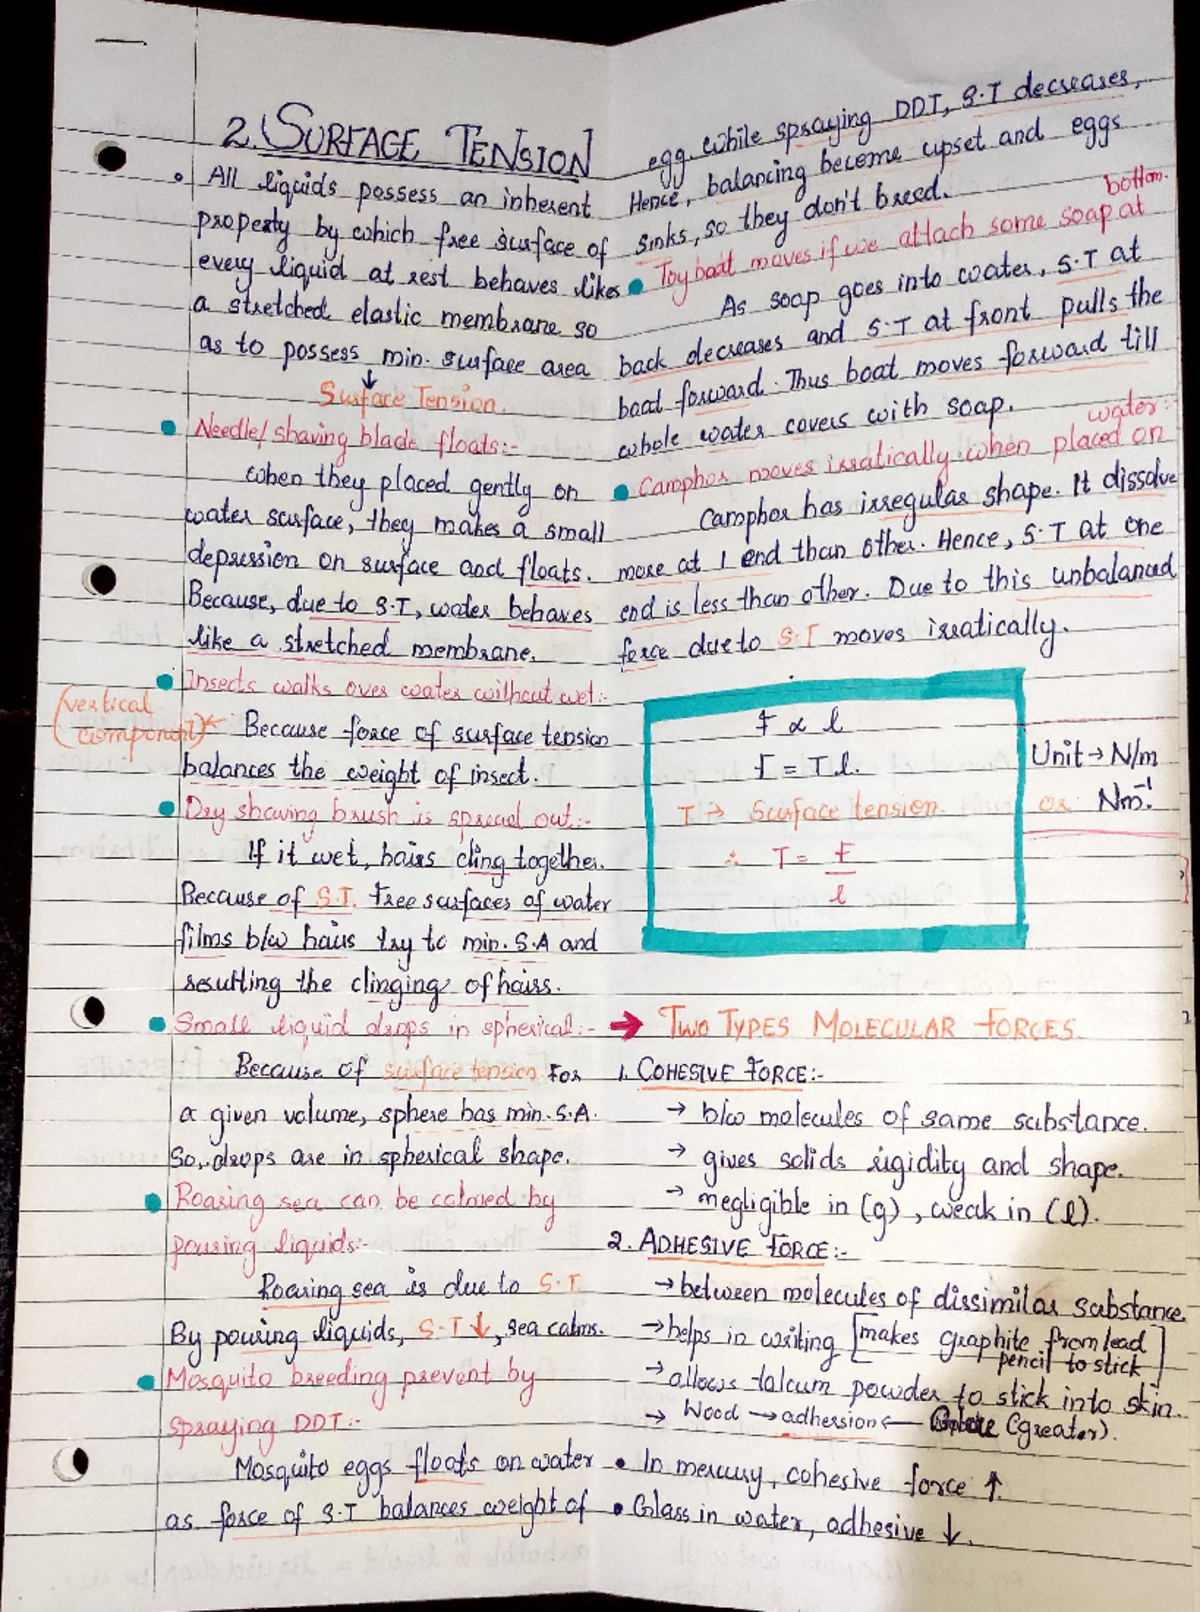 2. SURFACE TENSION
• All liquids possess an inherent
property by which free surface of
every liquid at rest behaves likes
a stretched elastic membrane so
as to possess min. surface area
↓
Surface Tension.
• Needle/shaving blade floats:-
when they placed gently on
water surface, they makes a small
depression on surface and floats.
Because, due to S.T, water behaves
like a stretched membrane.
• Insects walks over water without wet:-
(vertical
component)
Because force of surface tension
balances the weight of insect.
• Dry shaving brush is spread out:-
If it wet, hairs cling together.
Because of S.T. Free surfaces of water
films b/w hairs try to min. S.A and
resulting the clinging of hairs.
• Small liquid drops in spherical:-
Because of surface tension For
a given volume, sphere has min. S.A.
So, drops are in spherical shape.
• Roaring sea can be calmed by
pouring liquids:-
Roaring sea is due to S.T.
By pouring liquids, S.T ↓, sea calms.
• Mosquito breeding prevent by
spraying DDT:-
Mosquito eggs floats on water
as force of S.T balances weight of
egg. While spraying DDT, S.T decreases,
Hence, balancing become upset and eggs
sinks, so they don't breed.
• Toy boat moves if we attach some soap at bottom.
As soap goes into water, S.T at
back decreases and S.T at front pulls the
boat forward. Thus boat moves forward till
whole water covers with soap.
• Camphor moves irratically when placed on water:-
Camphor has irregular shape. It dissolve
more at 1 end than other. Hence, S.T at one
end is less than other. Due to this unbalanced
force due to S.T moves irratically.
F ∝ l
F = Tl.
T → Surface tension.
∴ T = F/l
Unit → N/m
or Nm⁻¹.
→ TWO TYPES MOLECULAR FORCES
1. COHESIVE FORCE:-
→ b/w molecules of same substance.
→ gives solids rigidity and shape.
→ negligible in (g), weak in (l).
2. ADHESIVE FORCE:-
→ between molecules of dissimilar substance.
→ helps in writing [makes graphite from lead
pencil to stick]
→ allows talcum powder to stick into skin.
→ Wood → adhession ← (greater).
• In mercury, cohesive force ↑.
• Glass in water, adhesive ↓.